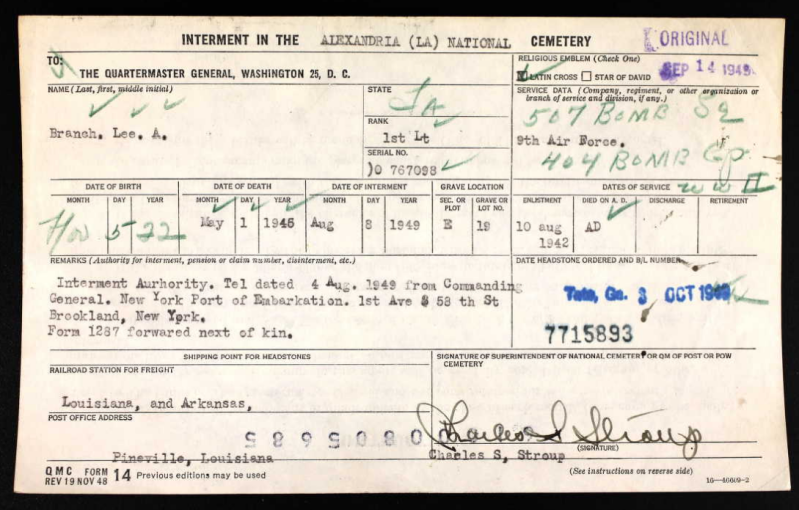 INTERMENT IN THE ALEXANDRIA (LA) NATIONAL CEMETERY
ORIGINAL
TO:
THE QUARTERMASTER GENERAL, WASHINGTON 25, D. C.
RELIGIOUS EMBLEM (Check One)
LATIN CROSS STAR OF DAVID
SEP 14 1949
NAME (Last, first, middle initial)
Branch. Lee. A.
STATE
La
RANK
1st Lt
SERIAL NO.
)O 767098
SERVICE DATA (Company, regiment, or other organization or
branch of service and division, if any.)
507 BOMB Sq
9th Air Force.
404 BOMB Gp
DATE OF BIRTH
MONTH DAY YEAR
Nov 5 22
DATE OF DEATH
MONTH DAY YEAR
May 1 1945
DATE OF INTERMENT
MONTH DAY YEAR
Aug 8 1949
GRAVE LOCATION
SEC. OR PLOT
GRAVE OR LOT NO.
E 19
DATES OF SERVICE WW II
ENLISTMENT DIED ON A. D. DISCHARGE RETIREMENT
10 aug
1942
AD
REMARKS (Authority for interment, pension or claim number, disinterment, etc.)
Interment Aurhority. Tel dated 4 Aug. 1949 from Commanding
General. New York Port of Embarkation. 1st Ave & 58 th St
Brookland, New York.
Form 1287 forwared next of kin.
DATE HEADSTONE ORDERED AND B/L NUMBER
Tate, Ga. 3 OCT 1949
7715893
SHIPPING POINT FOR HEADSTONES
RAILROAD STATION FOR FREIGHT
Louisiana, and Arkansas,
POST OFFICE ADDRESS
Pineville, Louisiana
SIGNATURE OF SUPERINTENDENT OF NATIONAL CEMETERY OR QM OF POST OR POW
CEMETERY
Charles S Stroup
(SIGNATURE)
Charles S, Stroup
QMC FORM
REV 19 NOV 48 14 Previous editions may be used
(See instructions on reverse side)
16—46609-2